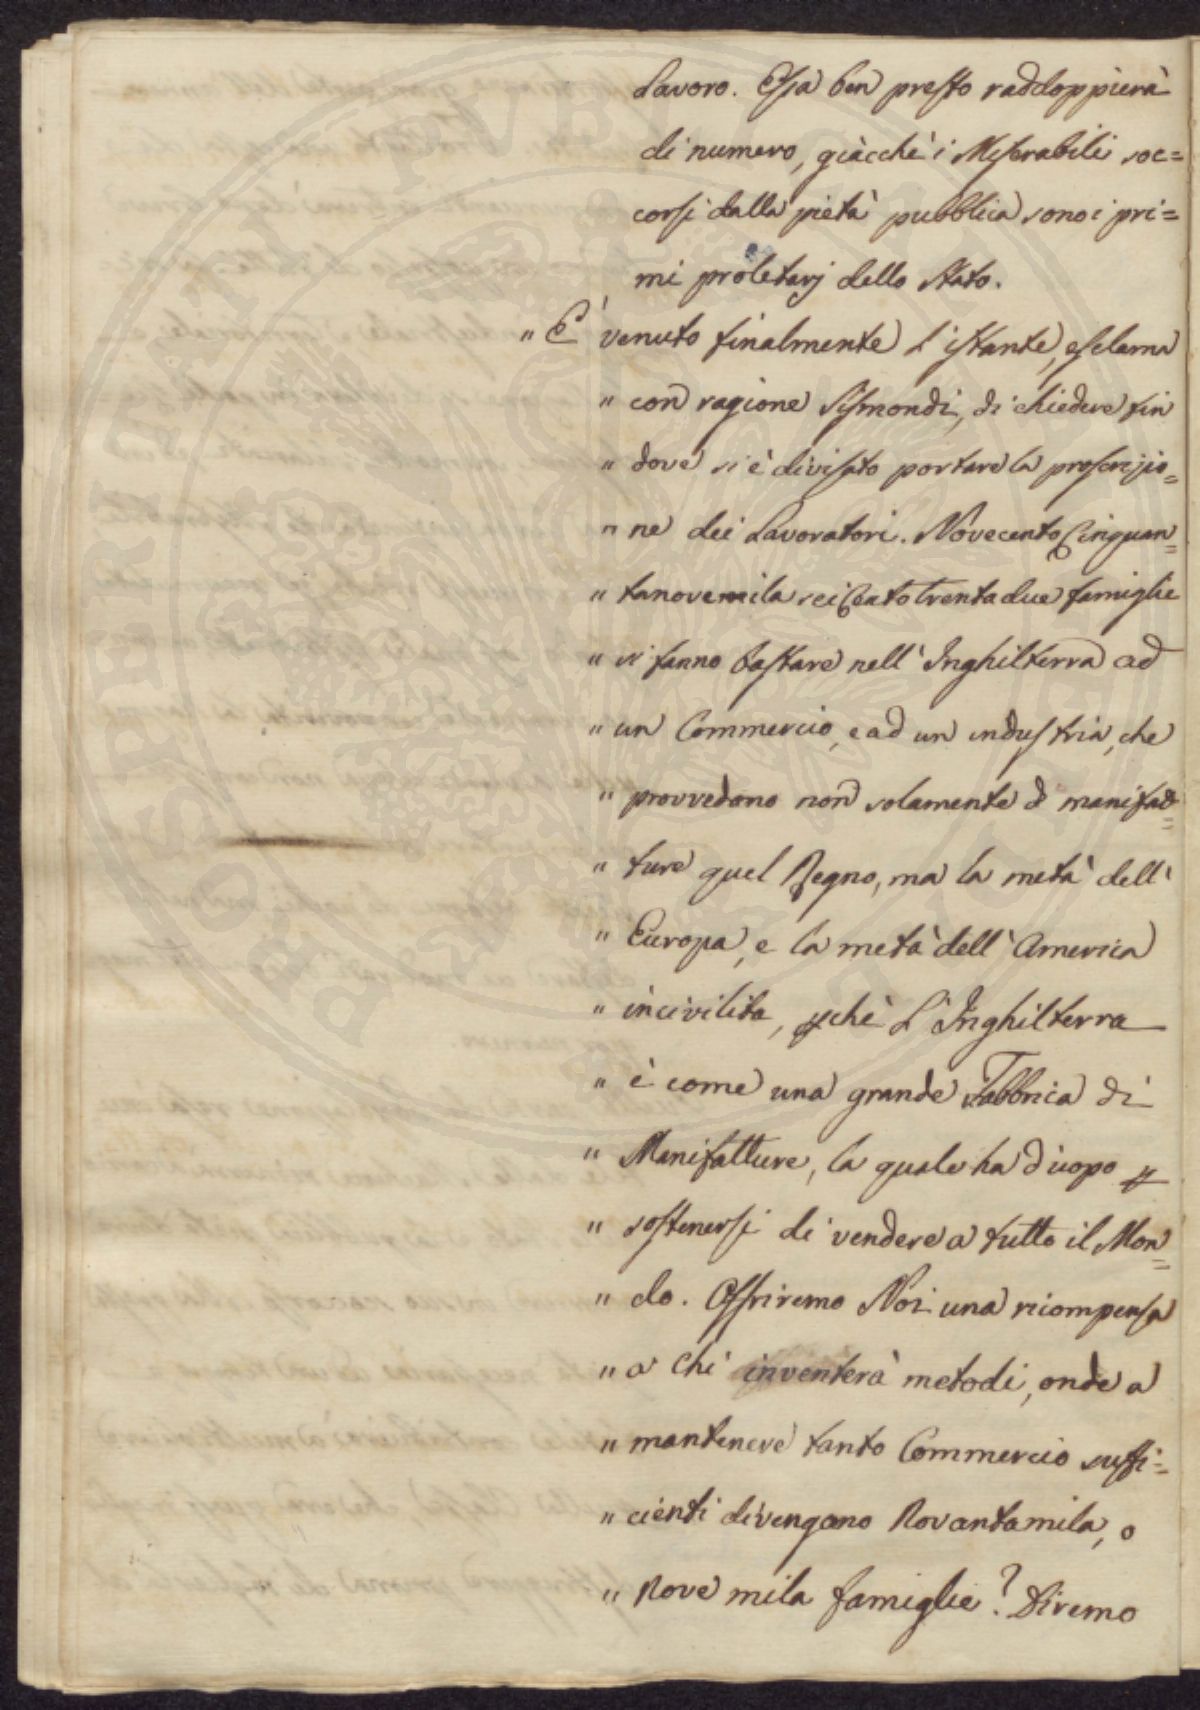 Lavoro. Essa ben presto raddoppierà
di numero, giacchè i Miserabili soc=
corsi dalla pietà pubblica sono i pri=
mi proletarj dello Stato.
" È venuto finalmente l'istante, esclama
" con ragione Sismondi, di chiedere fin
" dove si è divisato portare la proscrizio=
" ne dei Lavoratori. Novecento Cinquan=
" tanovemila seiCento trentadue famiglie
" si fanno bastare nell'Inghilterra ad
" un Commercio, e ad un industria, che
" provvedono non solamente di manifat=
" ture quel Regno, ma la metà dell'
" Europa, e la metà dell'America
" incivilita, pchè l'Inghilterra
" è come una grande Fabbrica di
" Manifatture, la quale ha d'uopo p
" sostenersi di vendere a tutto il Mon=
" do. Offriremo Noi una ricompensa
" a chi inventerà metodi, onde a
" mantenere tanto Commercio suffi=
" cienti divengano Novantamila, o
" Nove mila famiglie? Diremo